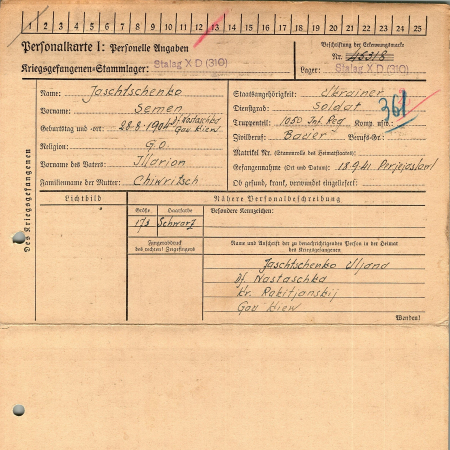 1 2 3 4 5 6 7 8 9 10 11 12 13 14 15 16 17 18 19 20 21 22 23 24 25
Personalkarte I: Personelle Angaben
Kriegsgefangenen-Stammlager: Stalag X D (310)
Beschriftung der Erkennungsmarke
Nr. 45318
Lager: Stalag X D (310)
Des Kriegsgefangenen
Name: Jaschtschenko
Vorname: Semen
Geburtstag und -ort: 28.8.1904 Df Nastaschka
Gou Kiew
Religion: G.O.
Vorname des Vaters: Illarion
Familienname der Mutter: Chiwritsch
Staatsangehörigkeit: Ukrainer
Dienstgrad: Soldat
Truppenteil: 1050 Inf. Reg Komp. usw.:
361
Zivilberuf: Bauer Berufs-Gr.:
Matrikel Nr. (Stammrolle des Heimatstaates):
Gefangennahme (Ort und Datum): 18.9.41 Perjejaslawl
Ob gesund, krank, verwundet eingeliefert:
Lichtbild
Nähere Personalbeschreibung
Größe Haarfarbe Besondere Kennzeichen:
173 Schwarz
Fingerabdruck
des rechten Zeigefingers
Name und Anschrift der zu benachrichtigenden Person in der Heimat
des Kriegsgefangenen:
Jaschtschenko Uljana
Df Nastaschka
Kr. Rokitjanskij
Gou Kiew
Wenden!